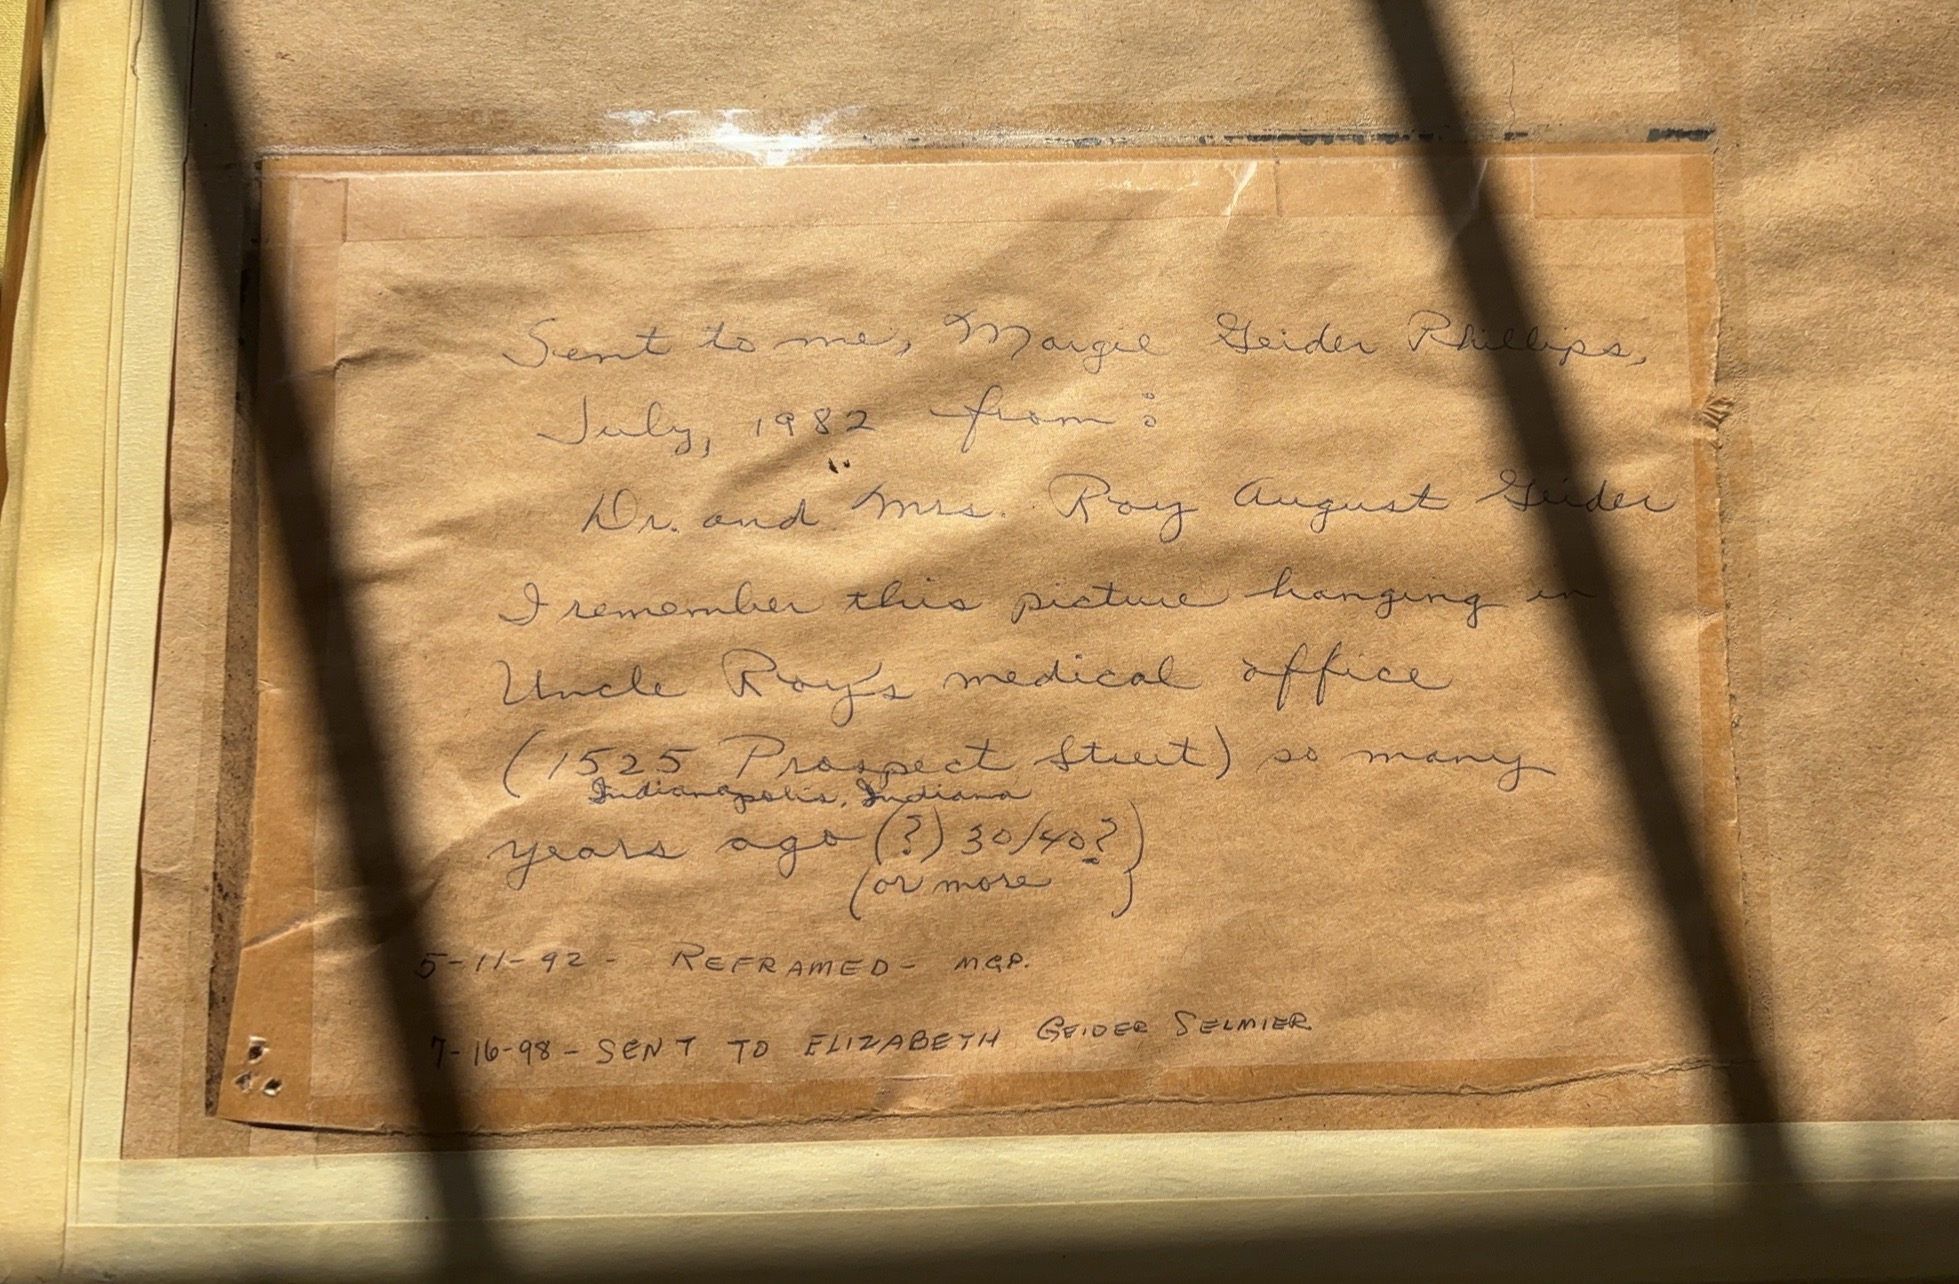 Sent to me, Margie Geider Phillips,
July, 1982 from:
Dr. and Mrs. Roy August Geider
I remember this picture hanging in
Uncle Roy's medical office
(1525 Prospect Street) so many
Indianapolis, Indiana
years ago (?) 30/40?)
(or more }
5-11-92 - REFRAMED - MGP.
7-16-98 - SENT TO ELIZABETH GEIDER SELMIER